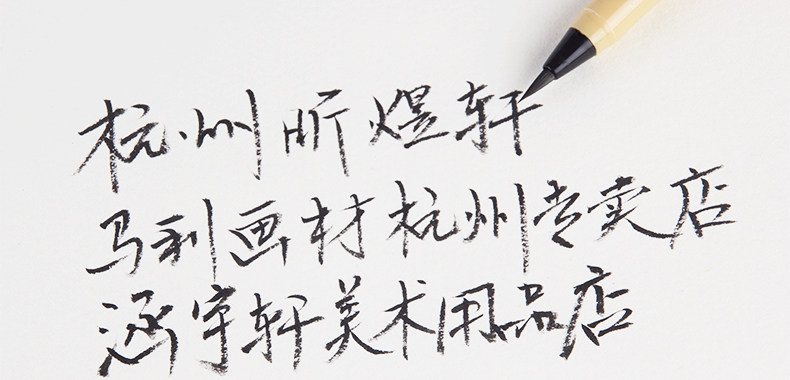 杭州昕煜轩
马利画材杭州专卖店
涵宇轩美术用品店